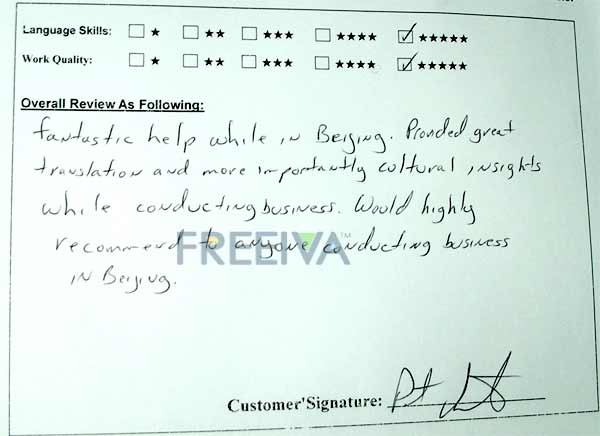 Language Skills: ☐ ★ ☐ ★★ ☐ ★★★ ☐ ★★★★ ☑ ★★★★★
Work Quality: ☐ ★ ☐ ★★ ☐ ★★★ ☐ ★★★★ ☑ ★★★★★
Overall Review As Following:
fantastic help while in Beijing. Provided great
translation and more importantly cultural insights
while conducting business. Would highly
recommend to anyone conducting business
in Beijing.
FREEIVA™
Customer'Signature: